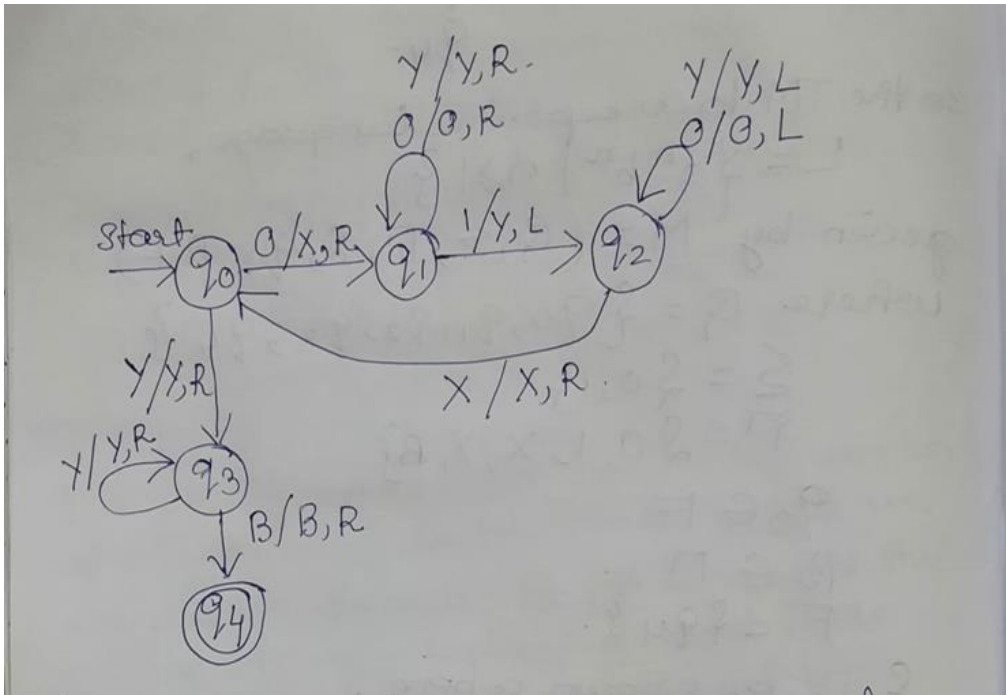 Y/Y,R.
0/0,R
Y/Y,L
0/0,L
Start
q0
0/X,R
q1
1/Y,L
q2
X/X,R.
Y/Y,R
Y/Y,R
q3
B/B,R
q4